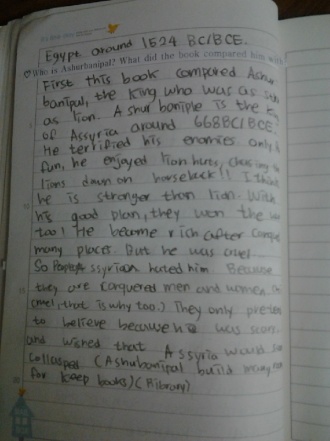 Egypt around 1524 BC/BCE.
Who is Ashurbanipal? What did the book compared him with
First this book compared Ashur
banipal, the king who was as
as lion. Ashur baniple is the
of Assyria around 668BC/BCE.
He terrified his enemies only
fun, he enjoyed lion hunts, chasing the
lions down on horseback!! I think
he is stronger than lion. With
his good plan, they won the
too! He become rich after
many places. But he was cruel
So ssyrian hated him Because
they are conquered men and women
cruel, that is why too.) They only
to believe because he was
and wished that Assyria would
collaspes (Ashubanipal build
for keep books) (